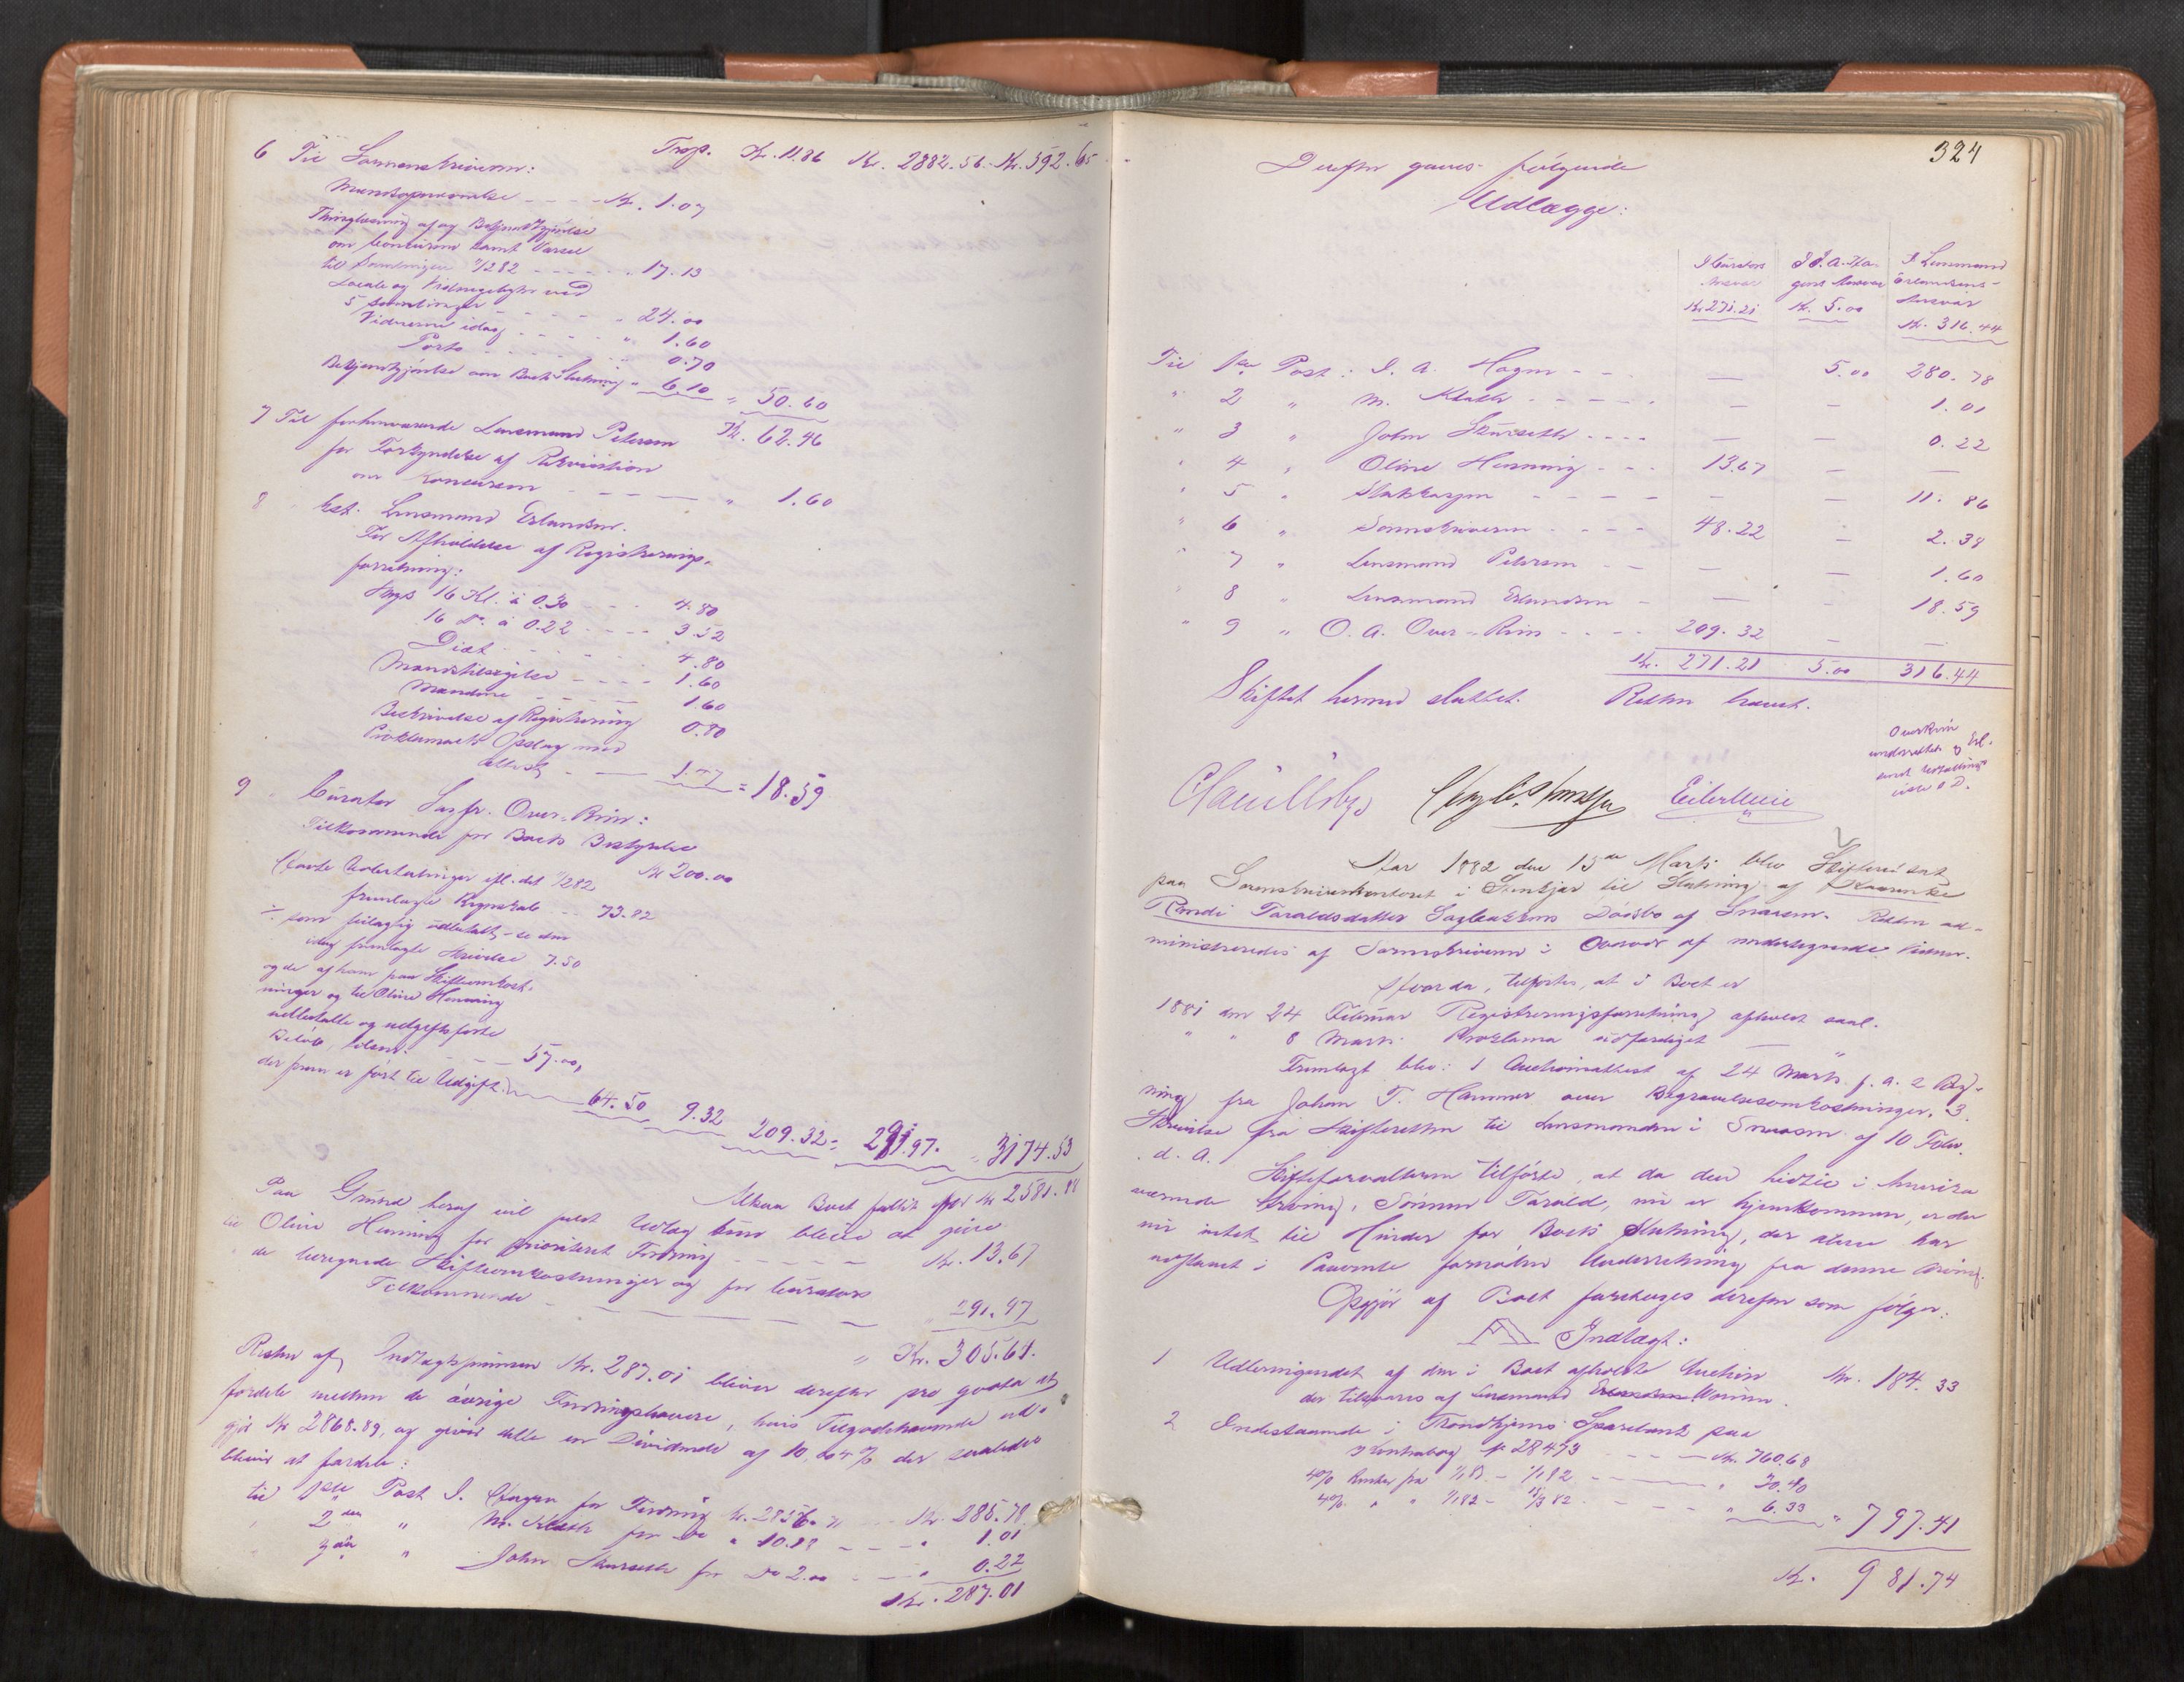 Trsp. Kr. 11.86 Kr. 2882.56. Kr. 592.65
6 Til Sorenskriveren:
Mandsopnævnelse - - - - Kr. 1.07
Thinglæsning af og Bekjendtgjørelse
om Concursen samt Varsel
til Samlingen 2/1282 - - - - - " 17.13
Locale og Vidnegebyhr ved
5 Samlinger - - - - - " 24.00
Vidnerne idag - - - - " 1.60
Porto - - - - - " 0.70
Bekjendtgjørelse om Boets Slutning " 6.10 " 50.60
Kr. 62.46
7 Til forhenværende Lensmand Petersen
for Forkyndelse af Rekvisition
om Koncursen - - - " 1.60
8 " Cst. Lensmand Erlandsen.
For Afholdelse af Registrerings-
forretning:
Skyds 16 Kl. à 0.30 - - - 4.80
16 Do. à 0.22 - - - - 3.52
Diæt - - - - - - 4.80
Mandstilsigelse - - - - 1.60
Mændene - - - - 1.60
Beskrivelse af Registrering 0.80
Proklamaets Opslag med
Attest - - - 1.47 = 18.59
9 " Curator Sagfr. Over-Rein:
Tilkommende for Boets Bestyrelse
Kr 200.00
Havte Udbetalinger efl. det 2/282
fremlagte Regnskab - - 73.82
÷ som feilagtig udbetalt, - se den
idag fremlagte Skrivelse 7.50
og de af ham paa Skifteomkost-
ninger og til Oline Henning
udbetalte og udgiftsførte
Beløb, tilsms. - - - 57.00,
der frem er ført til Udgift. 64.50 9.32 209.32 = 291.97. " 3174.53
Altsaa Boet fallit for Kr 2581.88
Paa Grund heraf vil fuldt Udlæg kun blive at give
til Oline Henning for prioriteret Fordring - - - - Kr. 13.67
" de beregnede Skifteomkostninger og for Curators
Tilkommende - - - - - " 291.97
" Kr. 305.64.
Resten af Indtægtssummen Kr. 287.01 bliver derefter pro qvota at
fordele mellem de øvrige Fordringshavere, hvis Tilgodehavende ud-
gjør Kr 2868.89, og giver dette en Dividende af 10,004 % der saaledes
bliver at fordele:
til 1ste Post I. Hagen for Fordring Kr. 2856. - - Kr. 285.78
" 2den " M. Kluth for Do " 10.18 - - - " 1.01
" 3die " John Skurseth for Do 2.00 - - - " 0.22
Kr. 287.01
324
Derefter gaves følgende
Udlægge:
I Curators Ansvar Kr. 271.21
I I. A. Hagens Ansvar Kr. 5.00
I Lensmand Erlandsens Ansvar Kr. 316.44
Til 1ste Post: I. A. Hagen - - - — 5.00 280.78
" 2 " M. Kluth - - - - - — — 1.01
" 3 " John Skurseth - - - - — — 0.22
" 4 " Oline Henning - - - 13.67 — —
" 5 " Statskassen - - - - — — 11.86
" 6 " Sorenskriveren - - - - 48.22 — 2.38
" 7 " Lensmand Petersen - - — — 1.60
" 8 " Lensmand Erlandsen - — — 18.59
" 9 " O. A. Over-Rein - - - - 209.32 — —
Kr. 271.21 5.00 316.44
Skiftet hermed sluttet. Retten hævet.
OverRein
underrettet og Erl.
sendt Udbetalings
liste s. D.
Aar 1882 den 15de Marts blev Skifteret sat
paa Sorenskriverkontoret i Stenkjær til Slutning af
Randi Taraldsdatter Dødsbo af Snaasen. Retten ad-
ministreredes af Sorenskriveren i Overvær af undertegnede Vidner.
Hvorda, tilførtes, at i Boet er
1881 den 24 Februar Registreringsforretning afholdt saal.
" " 8 Marts Proklama udfærdiget — "
Fremlagt blev: 1 Auctionsattest af 24 Marts f. a. 2 Reg-
ning fra Johan T. Hammer over Begravelsesomkostninger. 3.
Skrivelse fra Skifteretten til Lensmanden i Snaasen af 10 Febr.
d. A.
Skifteforvalteren tilførte, at da den hidtil i Amerika
værende Arving, Sønnen Tarald, nu er hjemkommen, er der
nu intet til Hinder for Boets Slutning, der alene har
udstaaet i Paavente fornøden Underretning fra denne Arving.
Opgjør af Boet foretoges derefter som følger:
A Indtægt:
1 Udbringendet af den i Boet afholdte Auction
der tilsvares af Lensmand Kr. 184.33
2 Indestaaende i Trondhjems Sparebank paa
Kontrabog № 28473 - - - Kr. 760.68
4% Renter fra 1/1 81 - 1/1 82 - - - " 30.40
4% " " 1/1 82 - 15/3 82 - - - - " 6.33 " 797.41
Kr. 981.74